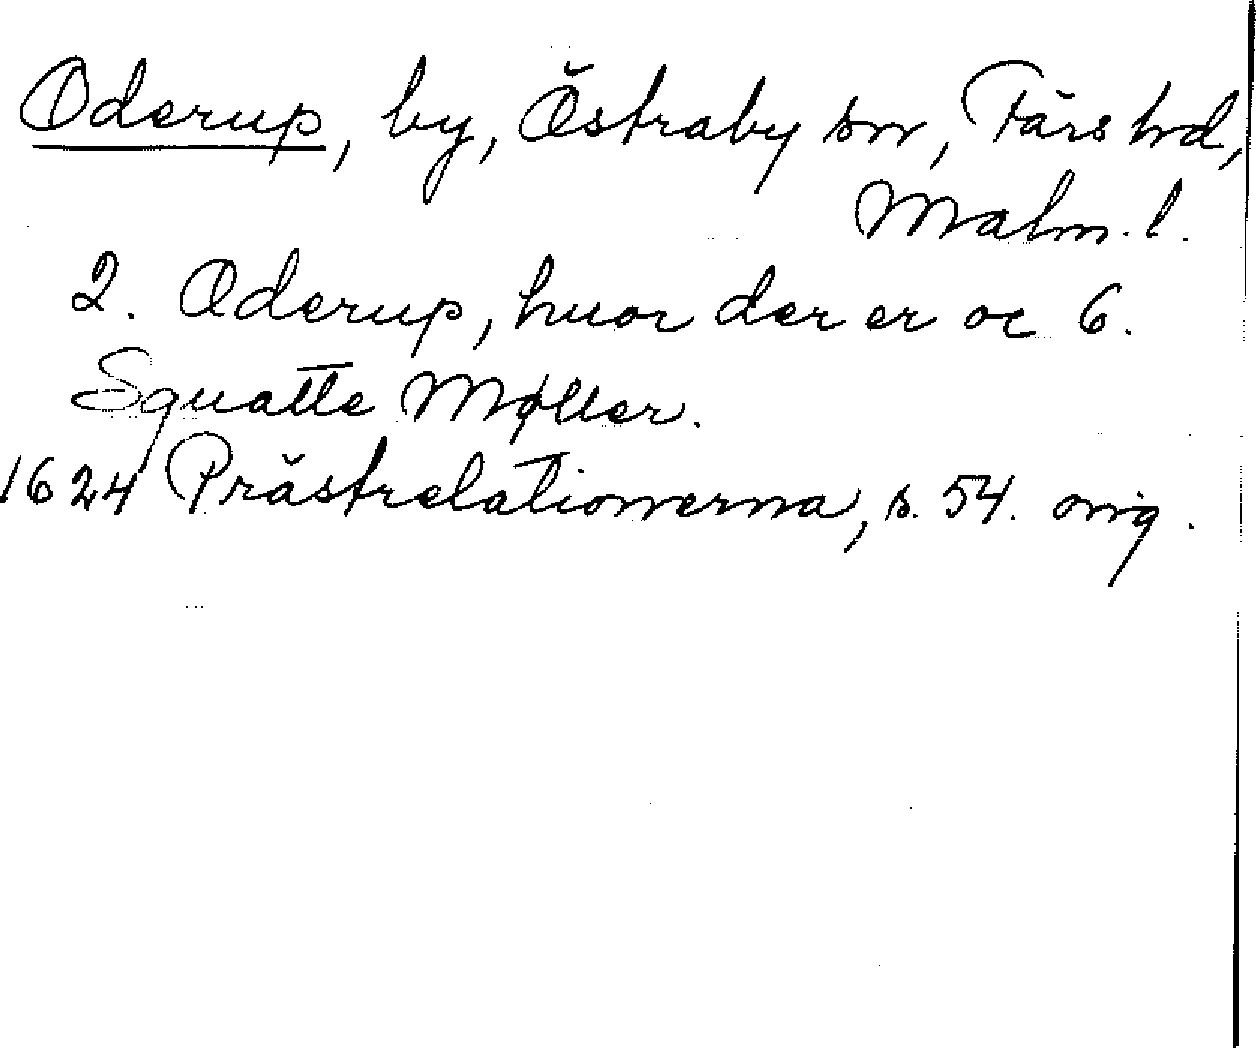 Oderup, by, Östraby sn, Färs hd,
Malm. l.
2. Oderup, huor der er oc 6.
Squatte Møller.
1624 Prästrelationerna, s. 54. orig.